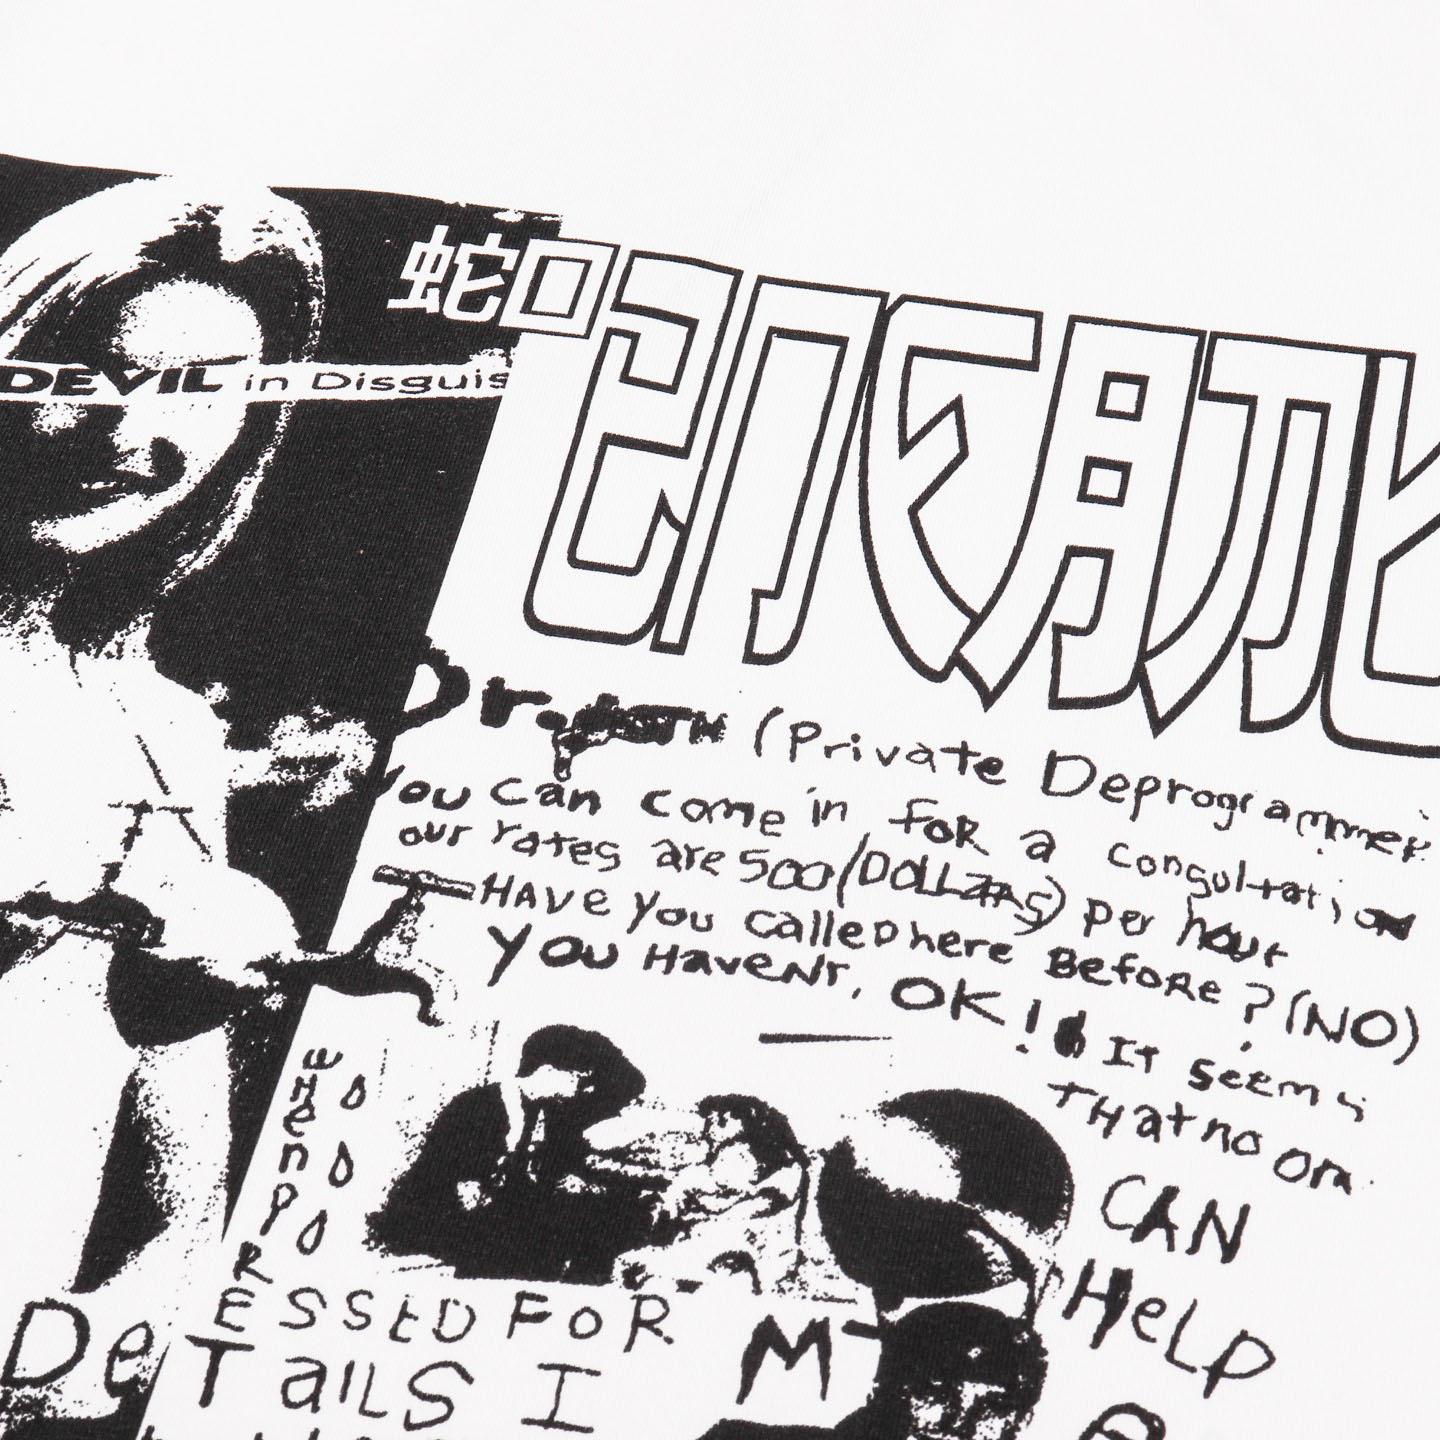 蛇口
DEVIL in Disguis
Dr. (Private Deprogrammer
You can come in foR a consultation
our rates are 500 (DoLLaRs) per hour
HAVe you calleD here Before? (NO)
you HaveNt, OK! It seems
THat no on
CAN
HeLP
wHenPRESSED FoR
DeTaiLS I
M